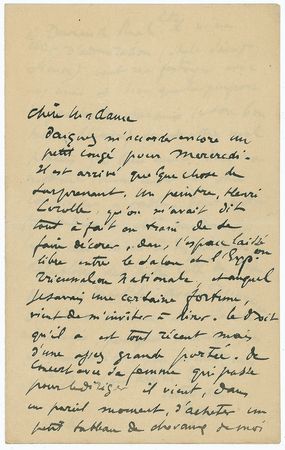 Chère Madame
Daignez m'accorder encore un
petit congé pour Mercredi.
Il est arrivé quelque chose de
surprenant. Un peintre, Henri
Cerolle qu'on m'avait dit
tout à fait en train de se
faire décorer, dans l'espace laissé
libre entre le Salon et l'Exposition
Nationale, et auquel
je savais une certaine fortune,
vient de m'inviter à dîner. le
qu'il a est tout récent mais
d'une assez grande portée. De
concert avec sa femme qui passe
pour le diriger il vient, dans
un pareil moment, d'acheter un
petit tableau de chevaux de moi